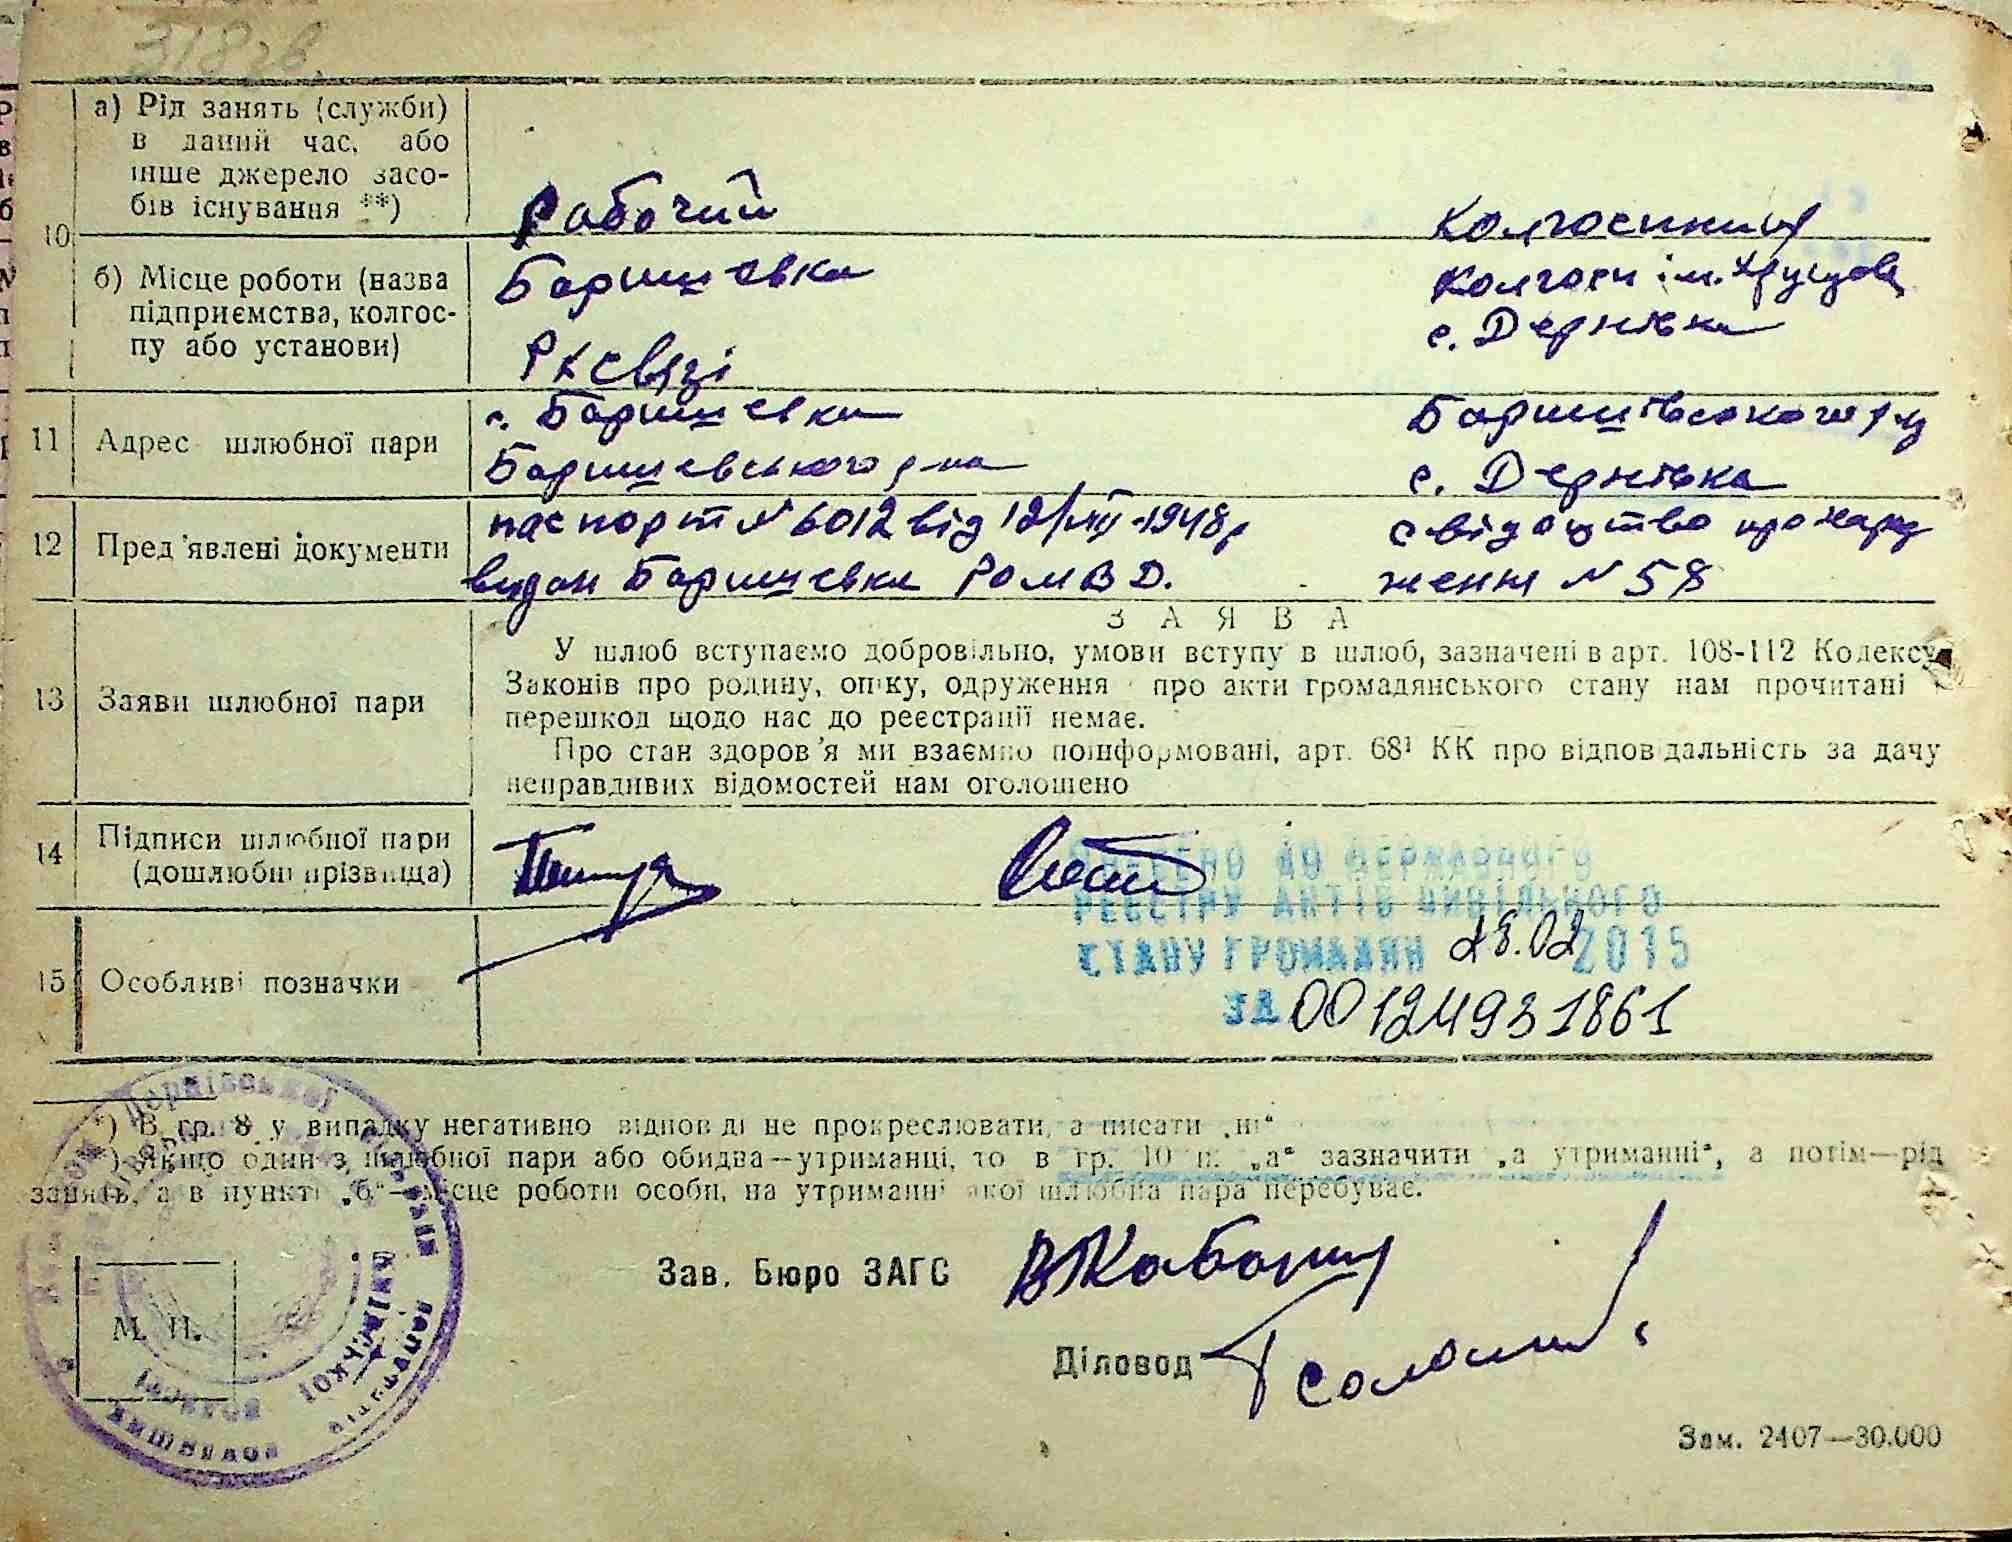 378 зв.
10
а) Рід занять (служби)
в даний час, або
інше джерело засо-
бів існування **)
Рабочий
Колгоспниця
б) Місце роботи (назва
підприємства, колгос-
пу або установи)
Баришевка
РКСвязі
Колгосп ім. Хрущова
с. Дернівка
11
Адрес шлюбної пари
с. Баришевка
Баришевського р-на
Баришівського р-ну
с. Дернівка
12
Пред'явлені документи
паспорт № 6012 від 12/VIII-1948р
видан Баришевка РОМВД.
свідоцтво про народ
ження № 58
13
Заяви шлюбної пари
ЗАЯВА
У шлюб вступаємо добровільно, умови вступу в шлюб, зазначені в арт. 108-112 Кодексу
Законів про родину, опіку, одруження про акти громадянського стану нам прочитані
перешкод щодо нас до реєстрації немає.
Про стан здоров'я ми взаємно поінформовані, арт. 68¹ КК про відповідальність за дачу
неправдивих відомостей нам оголошено
14
Підписи шлюбної пари
(дошлюбні прізвища)
ВНЕСЕНО ДО ДЕРЖАВНОГО
РЕЄСТРУ АКТІВ ЦИВІЛЬНОГО
СТАНУ ГРОМАДЯН 28.02 2015
ЗА 00124931861
15
Особливі позначки
*) В гр. 8 у випадку негативно відповіді не прокреслювати, а писати „ні“
) Якщо один з шлюбної пари або обидва—утриманці, то в гр. 10 п. „а“ зазначити „а утриманні“, а потім—рід
занять, а в пункті „б“—місце роботи особи, на утриманні якої шлюбна пара перебуває.
Зав. Бюро ЗАГС
М. П.
Діловод
Зам. 2407—30.000